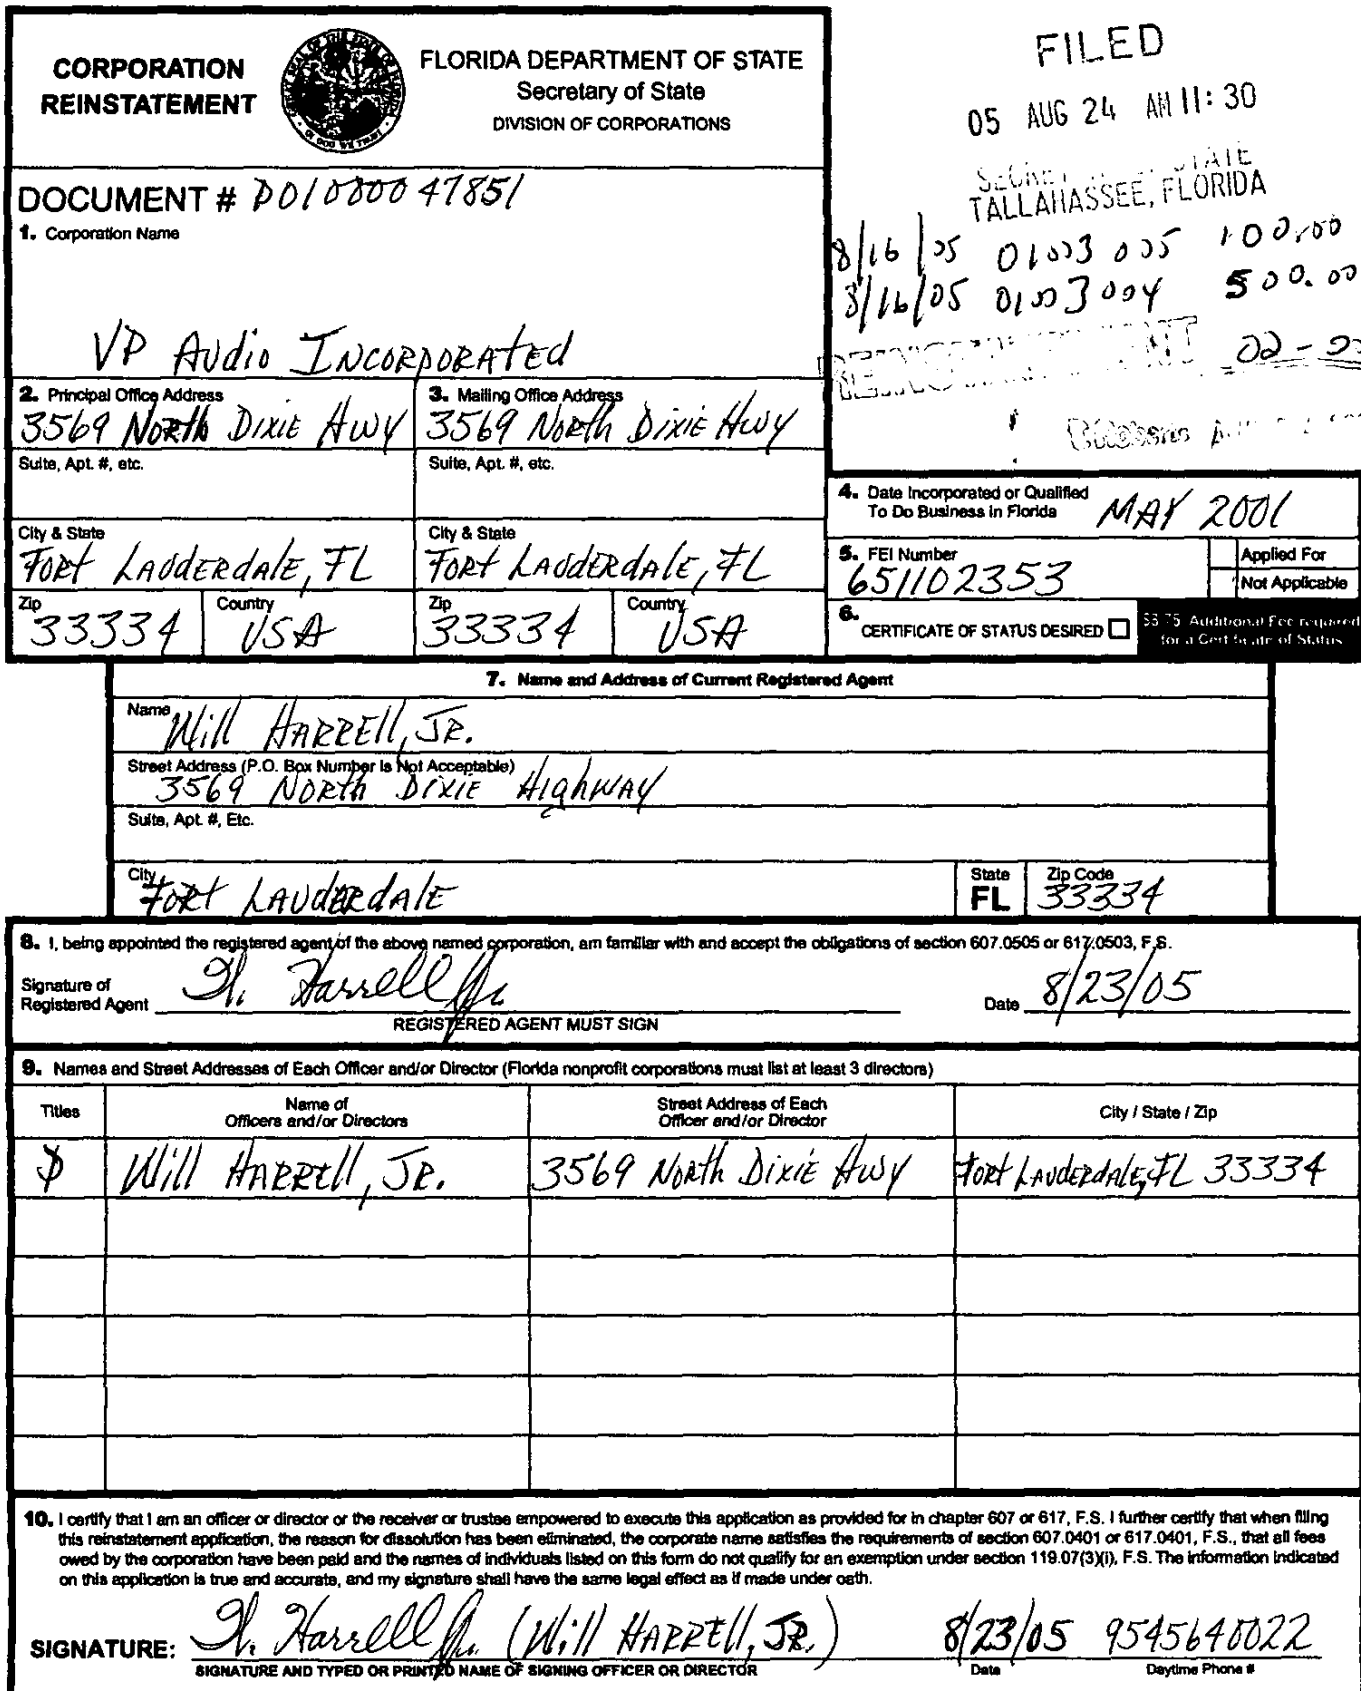 CORPORATION
REINSTATEMENT
FLORIDA DEPARTMENT OF STATE
Secretary of State
DIVISION OF CORPORATIONS
FILED
05 AUG 24 AM 11:30
TALLAHASSEE, FLORIDA
8/16/05 01003 005 100.00
8/16/05 01003 004 500.00
DOCUMENT # P01000047851
1. Corporation Name
VP Audio INCORPORATEd
2. Principal Office Address
3569 North Dixie Hwy
3. Mailing Office Address
3569 North Dixie Hwy
Suite, Apt. #, etc.
Suite, Apt. #, etc.
City & State
Fort Lauderdale, FL
City & State
Fort Lauderdale, FL
Zip
33334
Country
USA
Zip
33334
Country
USA
4. Date Incorporated or Qualified
To Do Business in Florida
MAY 2001
5. FEI Number
651102353
Applied For
Not Applicable
6.
CERTIFICATE OF STATUS DESIRED
Additional Fee required
for a Certificate of Status
7. Name and Address of Current Registered Agent
Name
Will Harrell, Jr.
Street Address (P.O. Box Number Is Not Acceptable)
3569 North Dixie Highway
Suite, Apt. #, Etc.
City
Fort Lauderdale
State
FL
Zip Code
33334
8. I, being appointed the registered agent of the above named corporation, am familiar with and accept the obligations of section 607.0505 or 617.0503, F.S.
Signature of
Registered Agent
W. Harrell Jr.
REGISTERED AGENT MUST SIGN
Date 8/23/05
9. Names and Street Addresses of Each Officer and/or Director (Florida nonprofit corporations must list at least 3 directors)
Titles
Name of
Officers and/or Directors
Street Address of Each
Officer and/or Director
City / State / Zip
Will Harrell, Jr.
3569 North Dixie Hwy
Fort Lauderdale, FL 33334
10. I certify that I am an officer or director or the receiver or trustee empowered to execute this application as provided for in chapter 607 or 617, F.S. I further certify that when filing
this reinstatement application, the reason for dissolution has been eliminated, the corporate name satisfies the requirements of section 607.0401 or 617.0401, F.S., that all fees
owed by the corporation have been paid and the names of individuals listed on this form do not qualify for an exemption under section 119.07(3)(i), F.S. The information indicated
on this application is true and accurate, and my signature shall have the same legal effect as if made under oath.
SIGNATURE: W. Harrell Jr. (Will Harrell, Jr.) 8/23/05 9545640022
SIGNATURE AND TYPED OR PRINTED NAME OF SIGNING OFFICER OR DIRECTOR
Date
Daytime Phone #